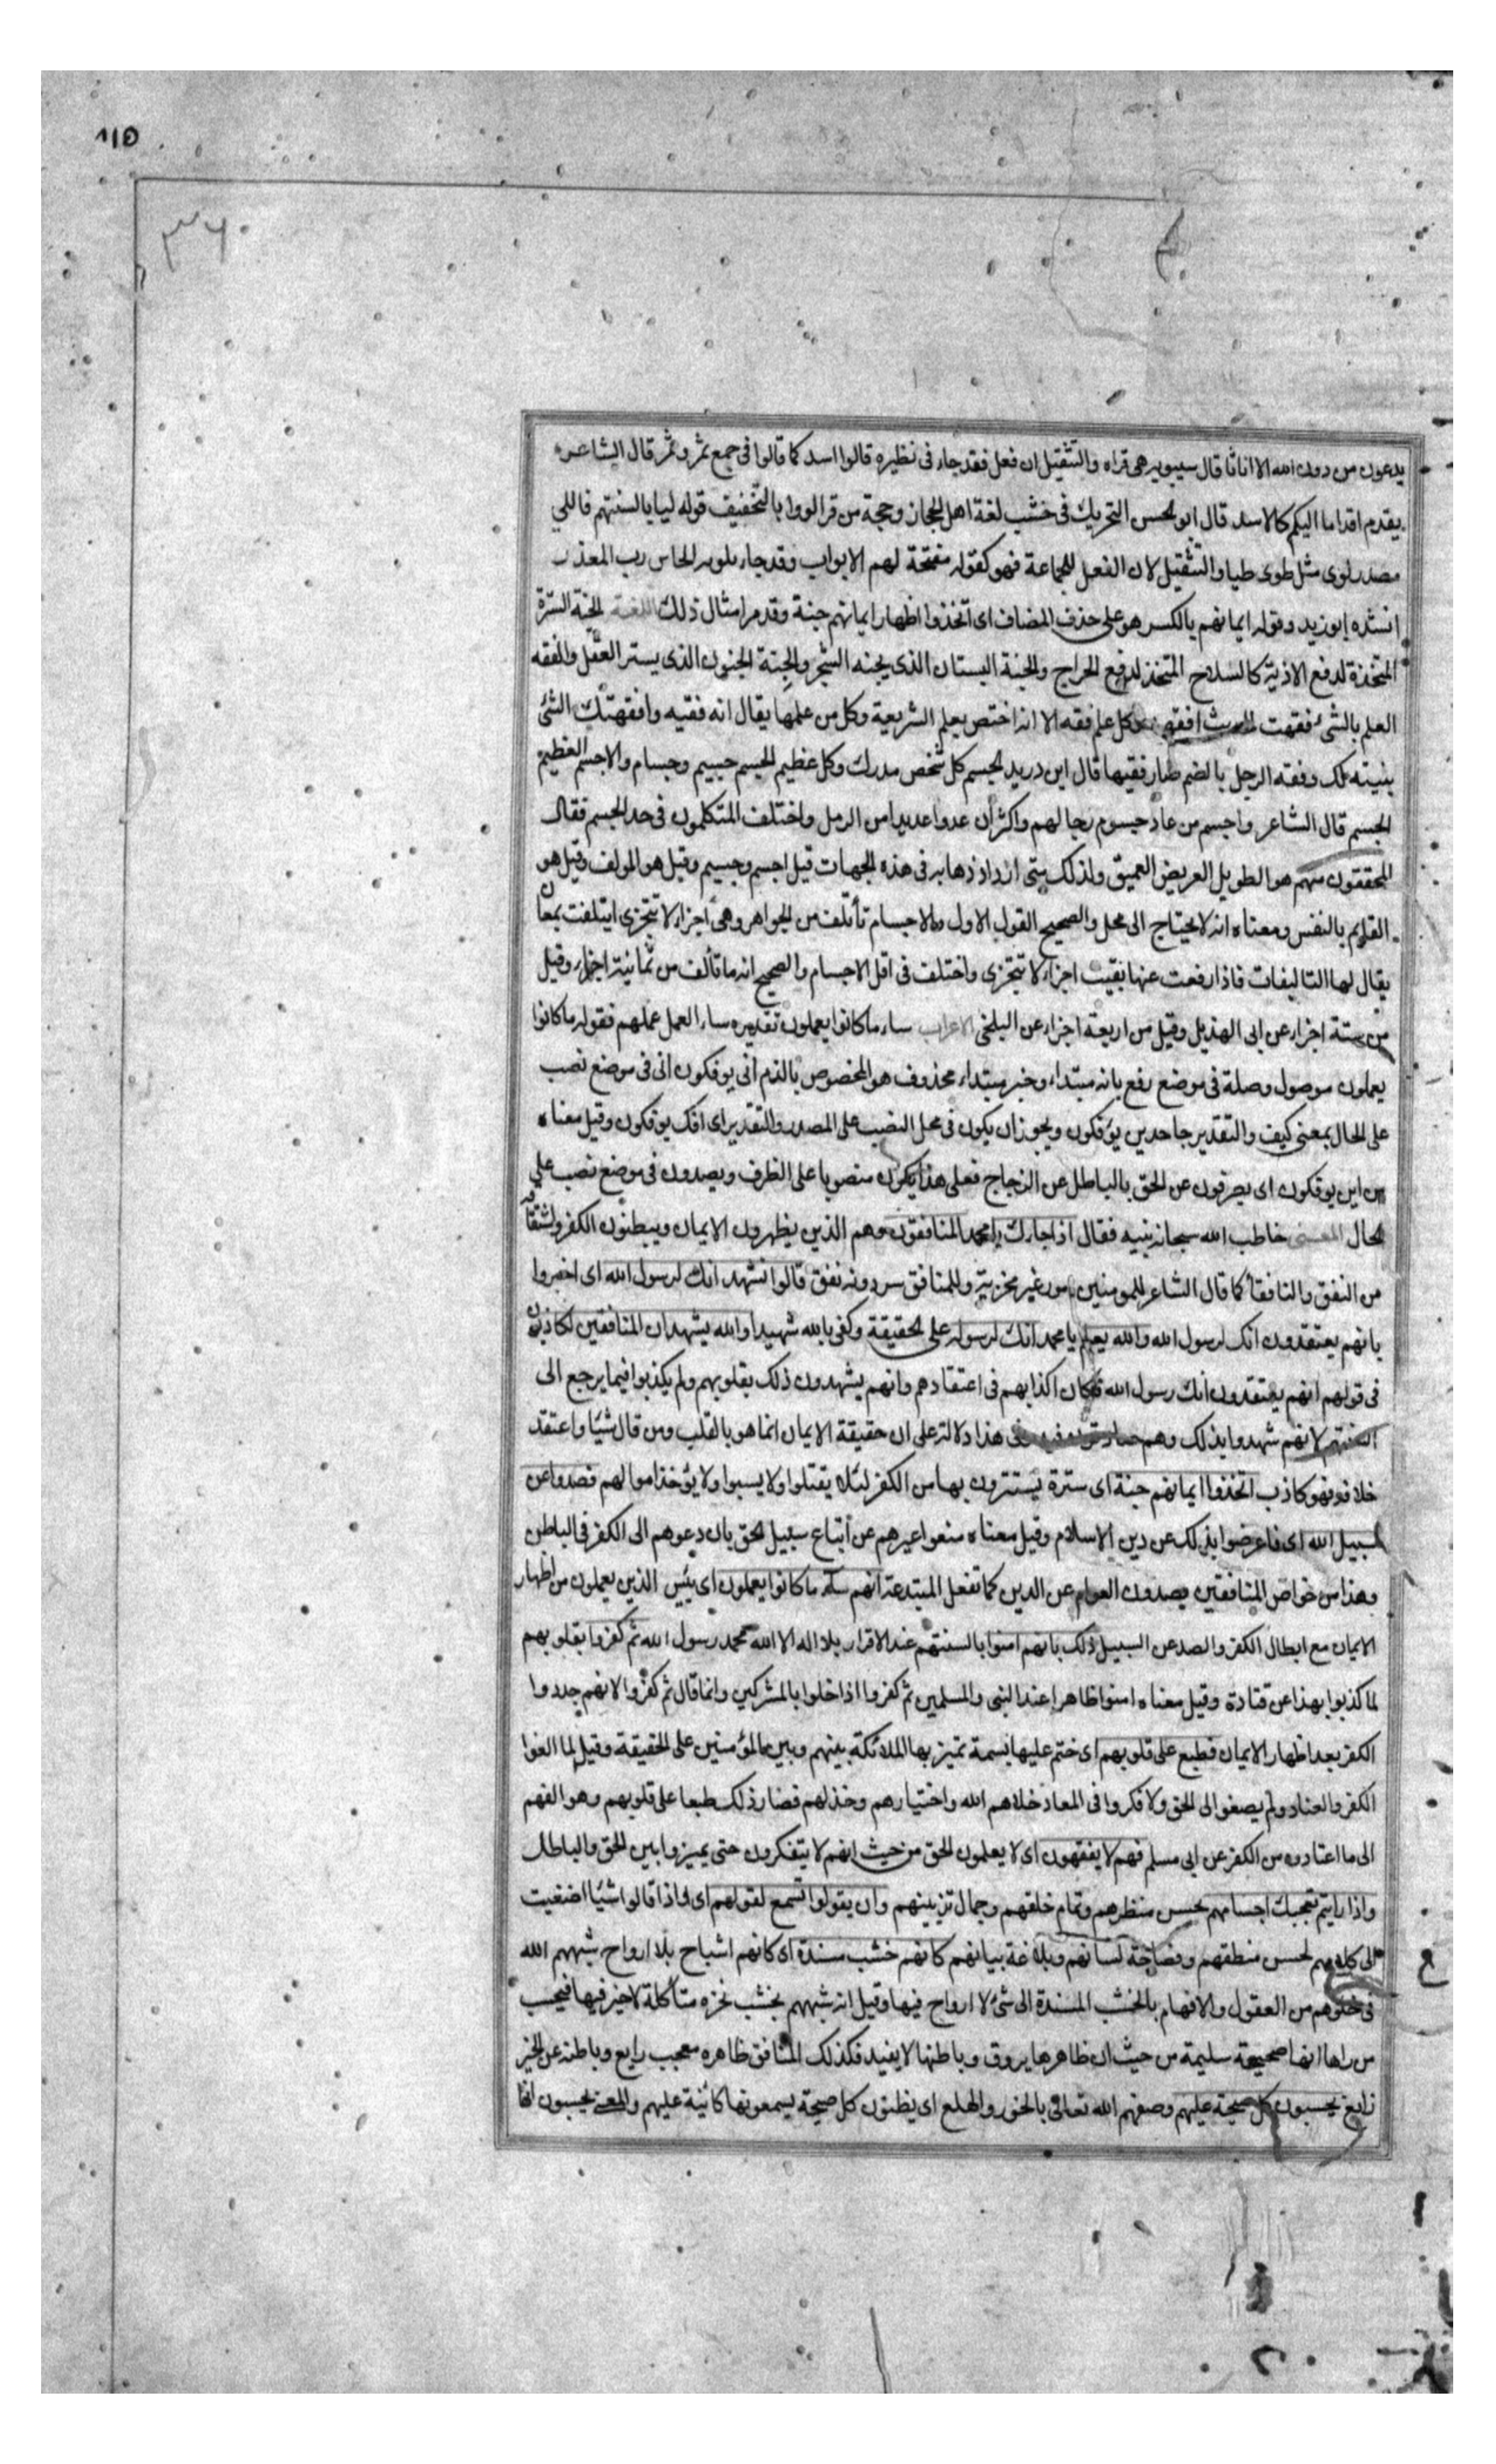 ١١٥
٣٦٠
يدعون من دون الله الا اناثا قال سيبويه هى قراه والتثقيل ان فعل فقد جاء فى نظيره قالوا اسد كما قالوا فى جمع ثمر وثمر قال الشاعر
يقدم اقداما اليكم كالاسد قال ابو لحسن التحريك فى خشب لغة اهل الحجاز وحجة من قرا لووا بالتخفيف قوله ليا بالسنتهم فاللى
مصدر لوى مثل طوى طيا والتثقيل لان الفعل للجماعة فهو كقوله مفتحة لهم الابواب وقد جاء تلويه الخاس رب المعذر
انشده ابو زيد وقوله ايمانهم بالكسر هو على حذف المضاف اى اتخذوا اظهار ايمانهم جنة وقد مر امثال ذلك اللغة الجنة السترة
المتخذة لدفع الاذية كالسلاح المتخذ لدفع الجراح والجنة البستان الذى يجنه الشجر والجِنة الجنون الذى يستر العقل والفقه
العلم بالشئ فقهت الحديث افقهه وكل علم فقه الا انه اختص بعلم الشريعة وكل من علمها يقال انه فقيه وافقهتك الشئ
بنيته لك وفقه الرجل بالضم صار فقيها قال ابن دريد لجسم كل شخص مدرك وكل عظيم الجسم جسيم وجسام والاجسم العظيم
الجسم قال الشاعر واجسم من عاد جسوم رجالهم واكثر ان عدوا عديدا من الرمل واختلف المتكلمون فى حد الجسم فقال
المحققون منهم هو الطويل العريض العميق ولذلك متى ازداد ذهابه فى هذه الجهات قيل اجسم وجسيم وقيل هو المولف وقيل هو
القايم بالنفس ومعناه انه لا يحتاج الى محل والصحيح القول الاول والاجسام تأتلف من الجواهر وهى اجزاء لا تتجزى ايتلفت بمعان
يقال لها التاليفات فاذا رفعت عنها بقيت اجزاء لا تتجزى واختلف فى اقل الاجسام والصحيح انه ما تألف من ثمانية اجزاء وقيل
من ستة اجزاء عن ابى الهذيل وقيل من اربعة اجزاء عن البلخى الاعراب ساء ما كانوا يعملون تقديره ساء العمل عملهم فقوله ما كانوا
يعملون موصول وصلة فى موضع رفع بانه مبتداء وخبر مبتداء محذوف هو المخصوص بالذم انى يوفكون انى فى موضع نصب
على الحال بمعنى كيف والتقدير جاحدين يؤفكون ويجوز ان يكون فى محل النصب على المصدر والتقدير اى افك يوفكون وقيل معناه
من اين يوفكون اى يصرفون عن الحق بالباطل عن الزجاج فعلى هذا يكون منصوبا على الظرف ويصدون فى موضع نصب على
الحال المعنى خاطب الله سبحانه نبيه فقال اذا جاءك يا محمد المنافقون وهم الذين يظهرون الايمان ويبطنون الكفر واشتقاقه
من النفق والنافقا كما قال الشاعر للمومنين امور غير مخزية وللمنافق سر دونه نفق قالوا نشهد انك لرسول الله اى اخبروا
بانهم يعتقدون انك لرسول الله والله يعلم يا محمد انك لرسوله على الحقيقة وكفى بالله شهيدا والله يشهد ان المنافقين لكاذبون
فى قولهم انهم يعتقدون انك رسول الله فكان اكذابهم فى اعتقادهم وانهم يشهدون ذلك بقلوبهم ولم يكذبوا فيما يرجع الى
السنتهم لانهم شهدوا بذلك وهم صادقون فيه وفى هذا دلالة على ان حقيقة الايمان انما هو بالقلب ومن قال شيئا واعتقد
خلافه فهو كاذب اتخذوا ايمانهم جنة اى سترة يستترون بها من الكفر لئلا يقتلوا ولا يسبوا ولا يؤخذ اموالهم فصدوا عن
سبيل الله اى فاعرضوا بذلك عن دين الاسلام وقيل معناه منعوا غيرهم عن اتباع سبيل الحق بان دعوهم الى الكفر فى الباطن
وهذا من خواص المنافقين يصدون العوام عن الدين كما تفعل المبتدعة انهم ساء ما كانوا يعملون اى بئس الذين يعملون من اظهار
الايمان مع ابطال الكفر والصد عن السبيل ذلك بانهم امنوا بالسنتهم عند الاقرار بلا اله الا الله محمد رسول الله ثم كفروا بقلوبهم
لما كذبوا بهذا عن قتادة وقيل معناه امنوا ظاهرا عند النبى والمسلمين ثم كفروا اذا خلوا بالمشركين وانما قال ثم كفروا لانهم جددوا
الكفر بعد اظهار الايمان فطبع على قلوبهم اى ختم عليها بسمة تميز بها الملائكة بينهم وبين المؤمنين على الحقيقة وقيل لما الفوا
الكفر والعناد ولم يصغوا الى الحق ولا فكروا فى المعاد خلاهم الله واختيارهم وخذلهم فصار ذلك طبعا على قلوبهم وهو الفهم
الى ما اعتادوه من الكفر عن ابى مسلم فهم لا يفقهون اى لا يعلمون الحق من حيث انهم لا يتفكرون حتى يميزوا بين الحق والباطل
واذا رايتهم تعجبك اجسامهم بحسن منظرهم وتمام خلقهم وجمال تزيينهم وان يقولوا تسمع لقولهم اى اذا قالوا شيئا اصغيت
الى كلامهم لحسن منطقهم وفصاحة لسانهم وبلاغة بيانهم كانهم خشب مسندة اى كانهم اشباح بلا ارواح شبههم الله
فى خلوهم من العقول والافهام بالخشب المسندة الى شئ لا ارواح فيها وقيل انه شبههم بخشب نخره متأكلة لا خير فيها فيحسب
من راها انها صحيحة سليمة من حيث ان ظاهرها يروق وباطنها لا يفيد فكذلك المنافق ظاهره معجب رايع وباطنه عن الخير
زايغ يحسبون كل صيحة عليهم وصفهم الله تعالى بالخور والهلع اى يظنون كل صيحة يسمعونها كائنة عليهم والمعنى يحسبون انها
ع